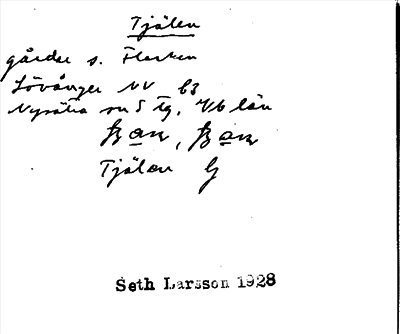 Tjälen
gårdar s. Flarken
Lövånger NV 63
Nysätra sn S tg. Vb län
Tjälen
Seth Larsson 1928